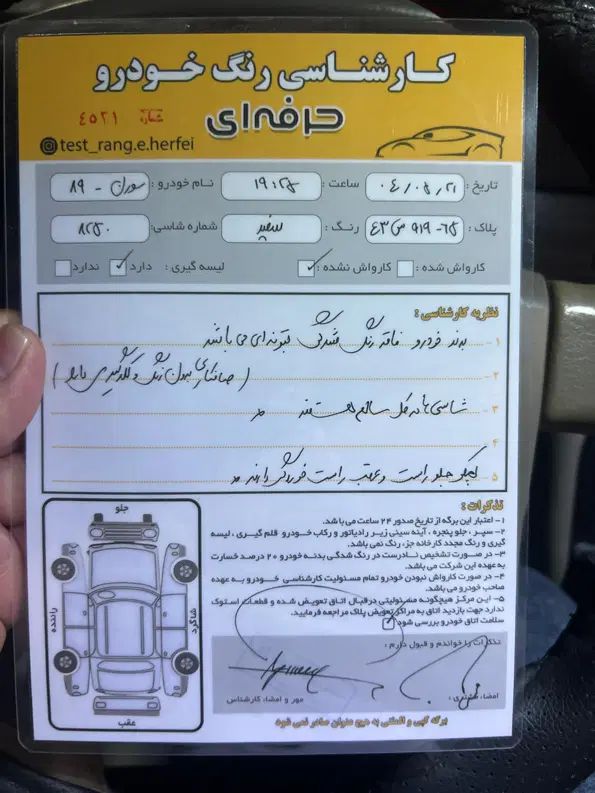 کارشناسی رنگ خودرو
حرفه‌ای
شماره ٤٥٢١
test_rang.e.herfei
تاریخ: ۰٤/۰۸/۲۱ ساعت: ۱۹:۲۵ نام خودرو: سورن - ۸۹
پلاک: ۶۵-۹۱۹ س ٤۳ رنگ: سفید شماره شاسی: ۸۲۵۰
کارواش شده: کارواش نشده: ✓ لیسه گیری: دارد ✓ ندارد
نظریه کارشناسی:
۱- بدنه خودرو فاقد رنگ شدگی می باشد
۲- ( بدون رنگ و )
۳- شاسی ها سالم هستند
۴-
۵- جلو راست و عقب راست خوردگی دارند
تذکرات:
۱- اعتبار این برگه از تاریخ صدور ۲۴ ساعت می باشد.
۲- سپر، جلو پنجره، آینه سینی زیر رادیاتور و رکاب خودرو قلم گیری، لیسه
گیری و رنگ مجدد کارخانه جزء رنگ نمی باشد.
۳- در صورت تشخیص نادرست در رنگ شدگی بدنه خودرو ۲۰ درصد خسارت
به عهده این شرکت می باشد.
۴- در صورت کارواش نبودن خودرو تمام مسئولیت کارشناسی خودرو به عهده
صاحب خودرو می باشد.
۵- این مرکز هیچگونه مسئولیتی درقبال اتاق تعویض شده و قطعات استوک
ندارد جهت بازدید اتاق به مراکز تعویض پلاک مراجعه فرمایید.
سلامت اتاق خودرو بررسی شود ✓
جلو
راننده
شاگرد
عقب
تذکرات را خواندم و قبول دارم:
امضاء مشتری:
مهر و امضاء کارشناس
برگه کپی و المثنی به هیچ عنوان صادر نمی شود